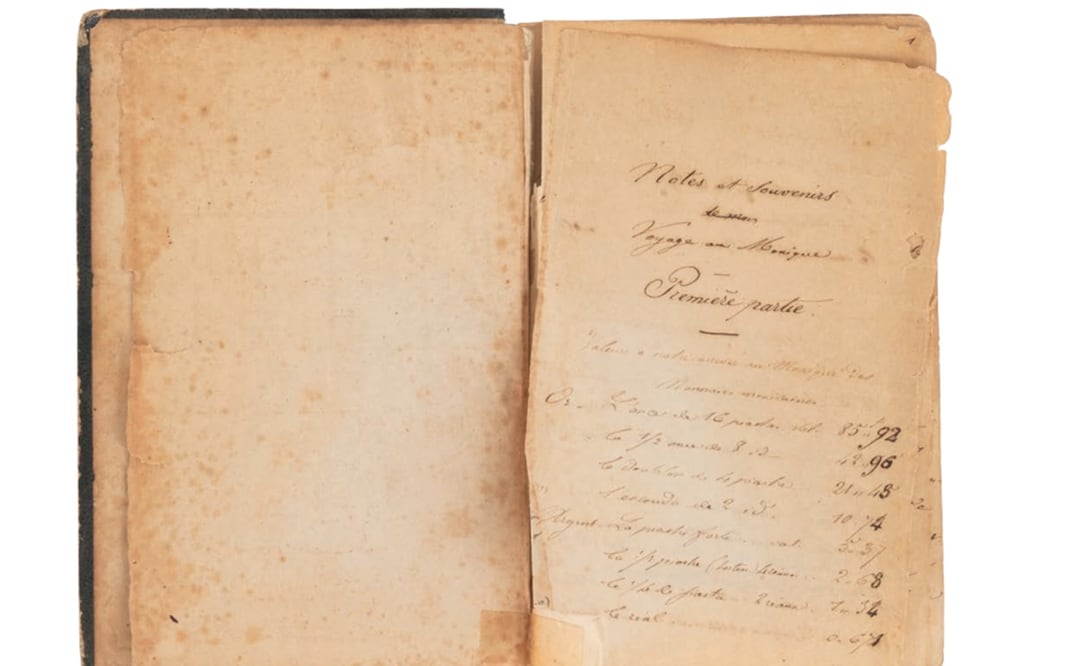 Notes et Souvenirs
de mon
Voyage au Mexique
Première partie.
Valeurs à notre arrivée au Mexique des
Monnaies mexicaines
Or. L'once de 16 piastres val. 85 92
la 1/2 once de 8 id. 42 96
le doublon de 4 piastres 21 48
l'escudo de 2 id. 10 74
Argent. La piastre forte val. 5 37
la 1/2 piastre 2 68
le 1/4 de piastre 2 réaux 1 34
le réal 0 671